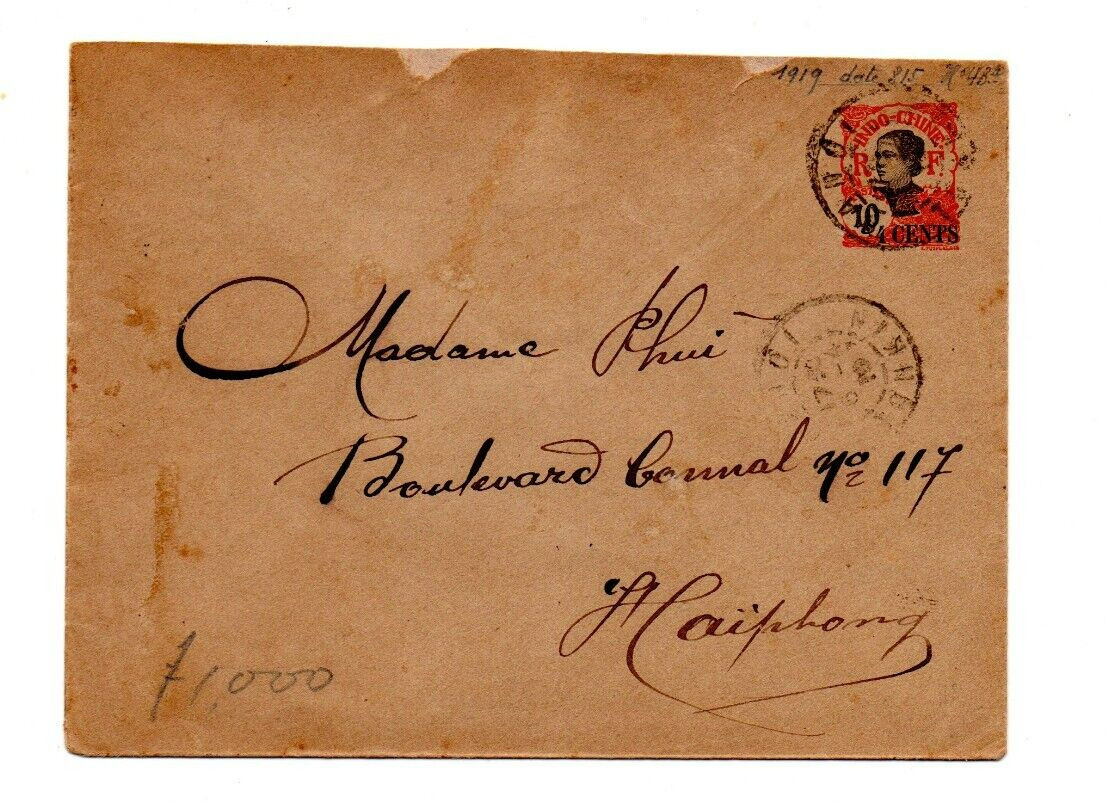 1919 date 815 No 48a
INDO-CHINE
R F.
10
4 CENTS
HANOI
TONKIN
Madame Phui
Boulevard Bonnal No 117
Haïphong
71,000